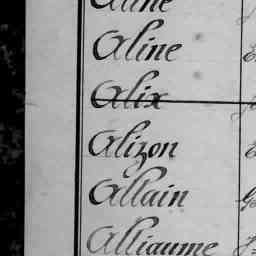 Aline
Alix
Alizon
Allain
Alliaume